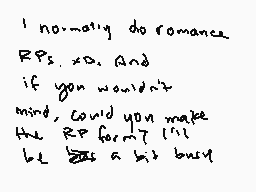 I normally do romance
RPs. xD. And
if you wouldn't
mind, could you make
the RP form? I'll
be a bit busy